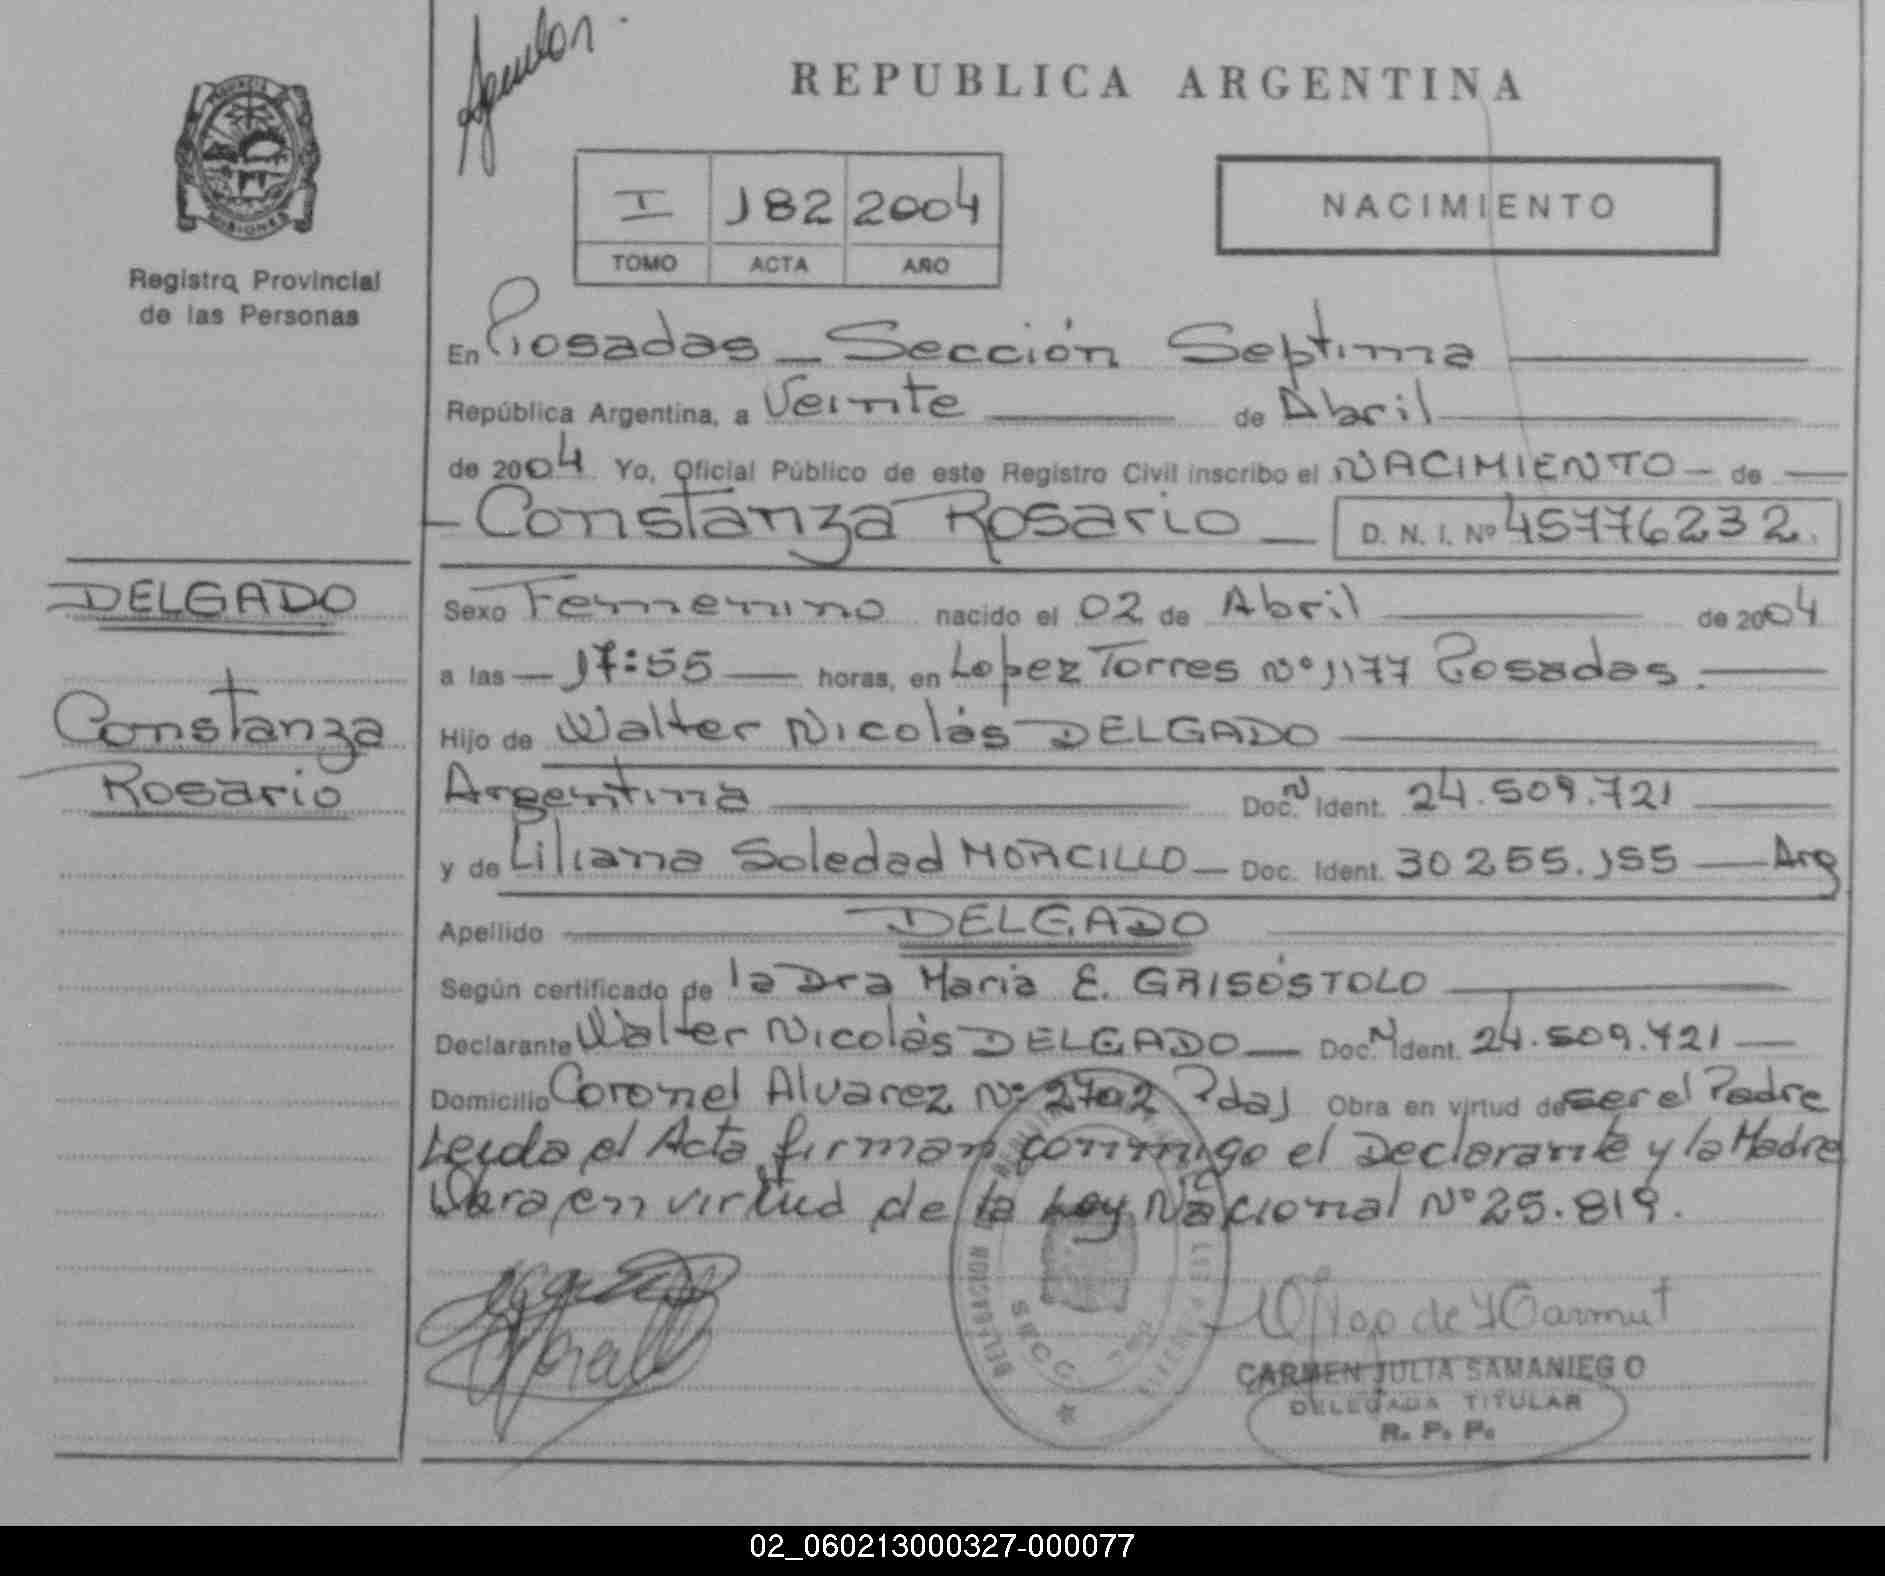 REPUBLICA ARGENTINA
MISIONES
Registro Provincial
de las Personas
I 182 2004
TOMO ACTA AÑO
NACIMIENTO
En Posadas - Sección Septima
República Argentina, a Veinte de Abril
de 2004 Yo, Oficial Público de este Registro Civil inscribo el NACIMIENTO - de
- Constanza Rosario - D. N. I. Nº 45776232.
DELGADO
Constanza
Rosario
Sexo Femenino nacido el 02 de Abril de 2004
a las - 17:55 - horas, en Lopez Torres Nº 1177 Posadas.
Hijo de Walter Nicolás DELGADO
Argentina Doc. N Ident. 24.509.721
y de Liliana Soledad MORCILLO - Doc. Ident. 30255.155 - Arg
Apellido DELGADO
Según certificado de la Dra Maria E. GRISÓSTOLO
Declarante Walter Nicolás DELGADO - Doc. N Ident. 24.509.721
Domicilio Coronel Alvarez Nº 2702 Pdas Obra en virtud de ser el Padre
Leyda el Acta, firman conmigo el Declarante y la Madre
Obra en virtud de la Ley Nacional Nº 25.819.
CARMEN JULIA SAMANIEGO
DELEGADA TITULAR
R. P. P.
02_060213000327-000077